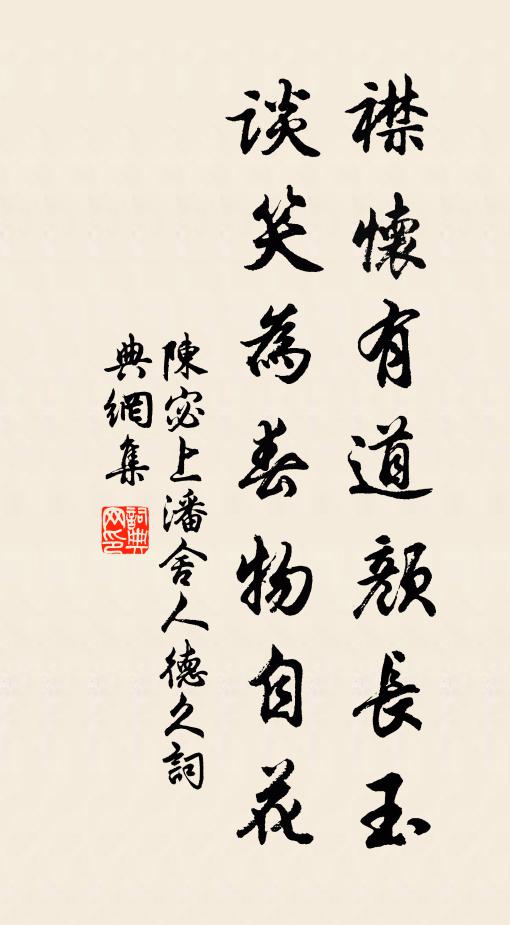 襟懷有道顏長玉
談笑為春物自花
陳宓上潘舍人德久詞
典網集
詞典
网印